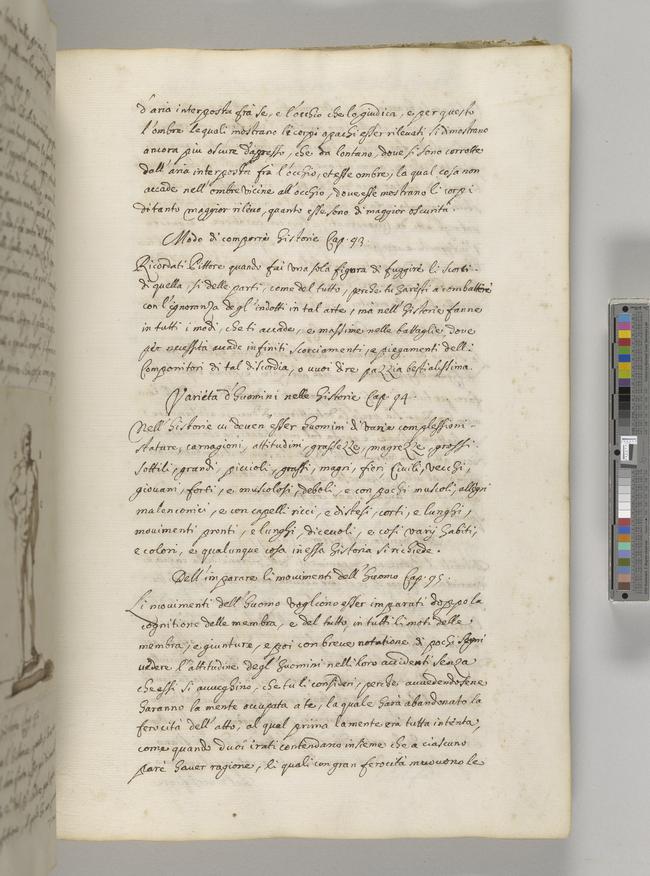 d'aria interposta frà se, e l'occhio che la giudica, e per questo
l'ombre le quali mostrano li corpi opachi esser rilevati si dimostrano
ancora più oscure dapresso, che da lontano, dove si sono corrotte
dall'aria interposta frà l'occhio, et esse ombre, la qual cosa non
accade nell'ombre vicine all'occhio, dove esse mostrano li corpi
di tanto maggior rilevo, quanto esse sono di maggior oscurità.
Modo di comporre historie Cap. 93.
Ricordati Pittore quando fai una sola figura di fuggire li scorti
di quella, si delle parti, come del tutto, perche tu haresti a combattere
con l'ignoranza degl'indotti in tal arte, mà nell'historie fanne
in tutti i modi, che ti accade, e massime nelle battaglie dove
per necessità accade infiniti scorciamenti, e piegamenti delli
Componitori di tal discordia, o vuoi dire pazzia bestialissima.
Varietà d'huomini nelle historie Cap. 94.
Nell'historie vi deven'esser huomini di varie complessioni
stature, carnagioni, attitudini, grassezze, magrezze, grossi,
sottili, grandi, piccioli, grassi, magri, fieri, Civili, vecchi,
giovani, forti, e musculosi, deboli, e con pochi musculi, allegri
malenconici, e con capelli ricci, e distesi, corti, e lunghi,
movimenti pronti, e lunghi, dicevoli, e cosi varij habiti,
e colori, e qualunque cosa in essa historia si richiede.
Dell'imparare li movimenti dell'huomo Cap. 95.
Li movimenti dell'huomo vogliono esser imparati doppo la
cognitione delle membra, e del tutto, in tutti li moti delle
membra, e giunture, e poi con breve notatione di pochi segni
vedere l'attitudine degl'huomini nelli loro accidenti senza
che essi si avveghino, che tu li consideri, perche avvedendosene
haranno la mente occupata a te, la quale harà abandonato la
ferocità dell'atto, al qual prima la mente era tutta intenta,
come quando duoi irati contendano insieme che a ciascuno
pare haver ragione, li quali con gran ferocità muovono le